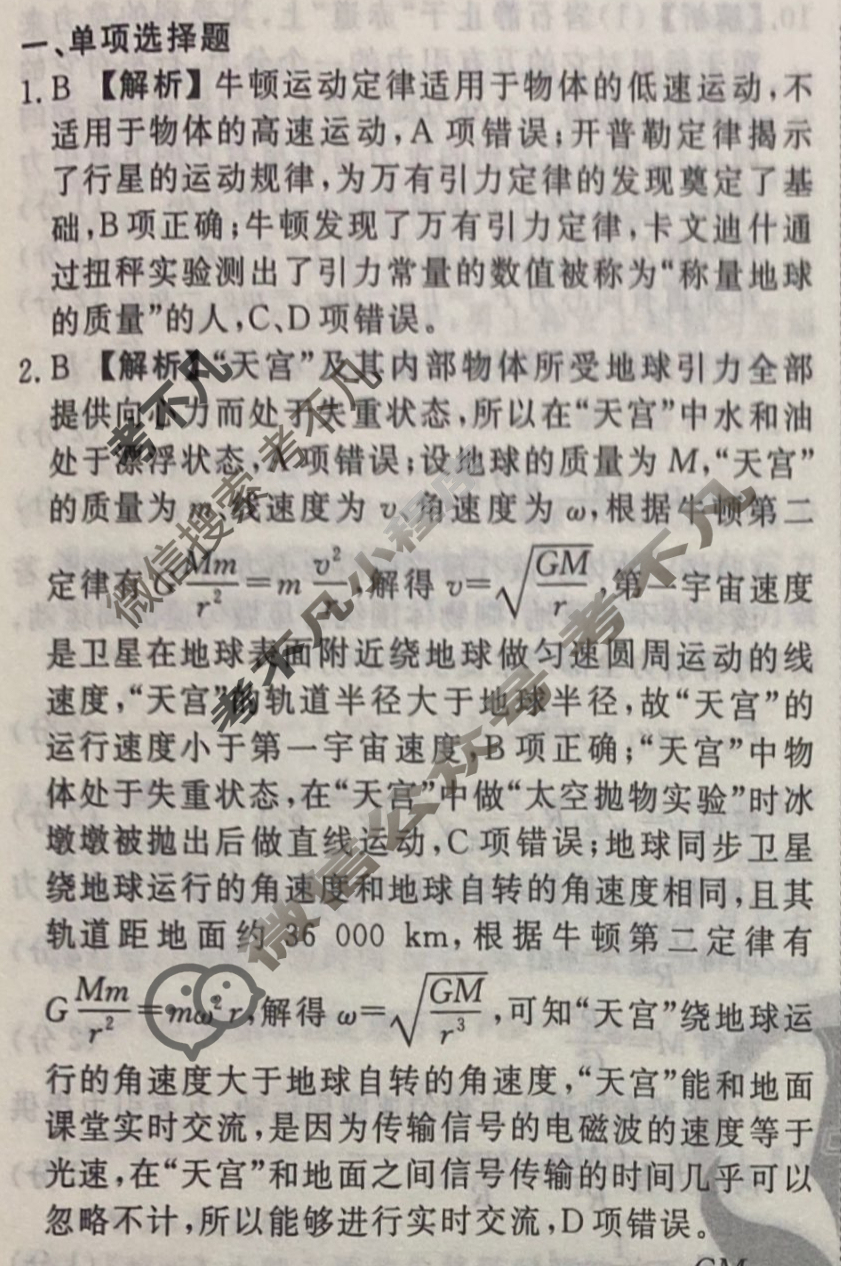 一、单项选择题
1. B 【解析】牛顿运动定律适用于物体的低速运动,不
适用于物体的高速运动,A 项错误;开普勒定律揭示
了行星的运动规律,为万有引力定律的发现奠定了基
础,B项正确;牛顿发现了万有引力定律,卡文迪什通
过扭秤实验测出了引力常量的数值被称为“称量地球
的质量”的人,C、D项错误。
2. B 【解析】“天宫”及其内部物体所受地球引力全部
提供向心力而处于失重状态,所以在“天宫”中水和油
处于漂浮状态,A项错误;设地球的质量为 M,“天宫”
的质量为 m、线速度为 v、角速度为 ω,根据牛顿第二
定律有 G\frac{Mm}{r^2}=m\frac{v^2}{r},解得 v=\sqrt{\frac{GM}{r}},第一宇宙速度
是卫星在地球表面附近绕地球做匀速圆周运动的线
速度,“天宫”的轨道半径大于地球半径,故“天宫”的
运行速度小于第一宇宙速度,B项正确;“天宫”中物
体处于失重状态,在“天宫”中做“太空抛物实验”时冰
墩墩被抛出后做直线运动,C项错误;地球同步卫星
绕地球运行的角速度和地球自转的角速度相同,且其
轨道距地面约 36 000 km,根据牛顿第二定律有
G\frac{Mm}{r^2}=mω^2r,解得 ω=\sqrt{\frac{GM}{r^3}},可知“天宫”绕地球运
行的角速度大于地球自转的角速度,“天宫”能和地面
课堂实时交流,是因为传输信号的电磁波的速度等于
光速,在“天宫”和地面之间信号传输的时间几乎可以
忽略不计,所以能够进行实时交流,D项错误。
GM
考不凡
微信搜索考不凡
考不凡小程序
微信公众号 考不凡